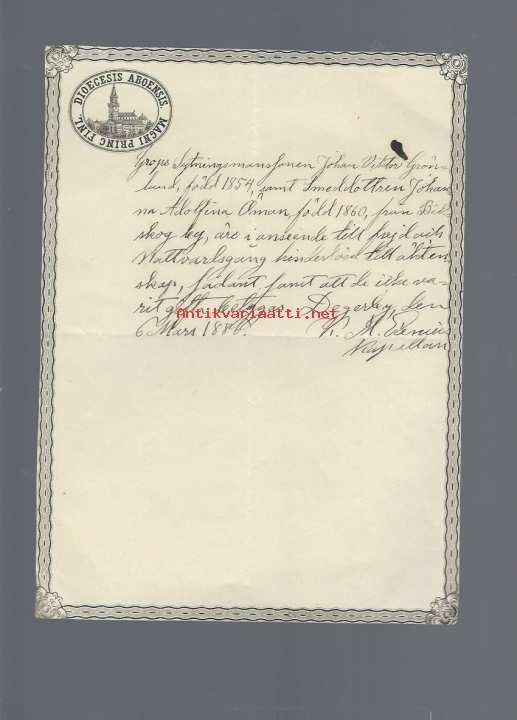 DIOECESIS ABOENSIS MAGNI PRINC. FINL.
Grops Sytningsmanssonen Johan Viktor Grön-
lund, född 1854, samt Smeddottren Johan
na Adolfina Öman, född 1860, från
skog by, äro i anseende till frejd och
Nattvardsgång hinderlösa till äkten
skap, sådant, samt att de icke va-
rit gifta betygas, Degerby, den
6 Mars 188
K. M.
Kapellan
Antikvariaatti.net